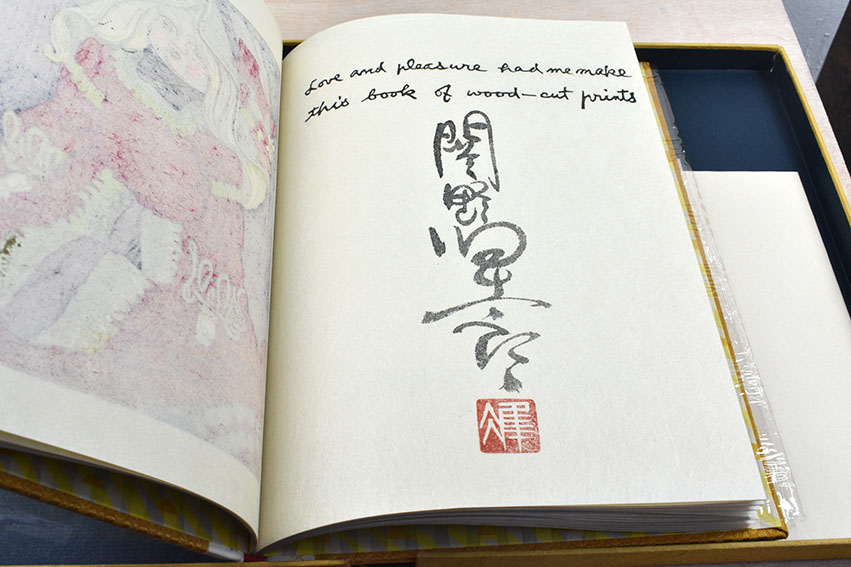 Love and pleasure had me make
this book of wood-cut prints
関野凖一郎